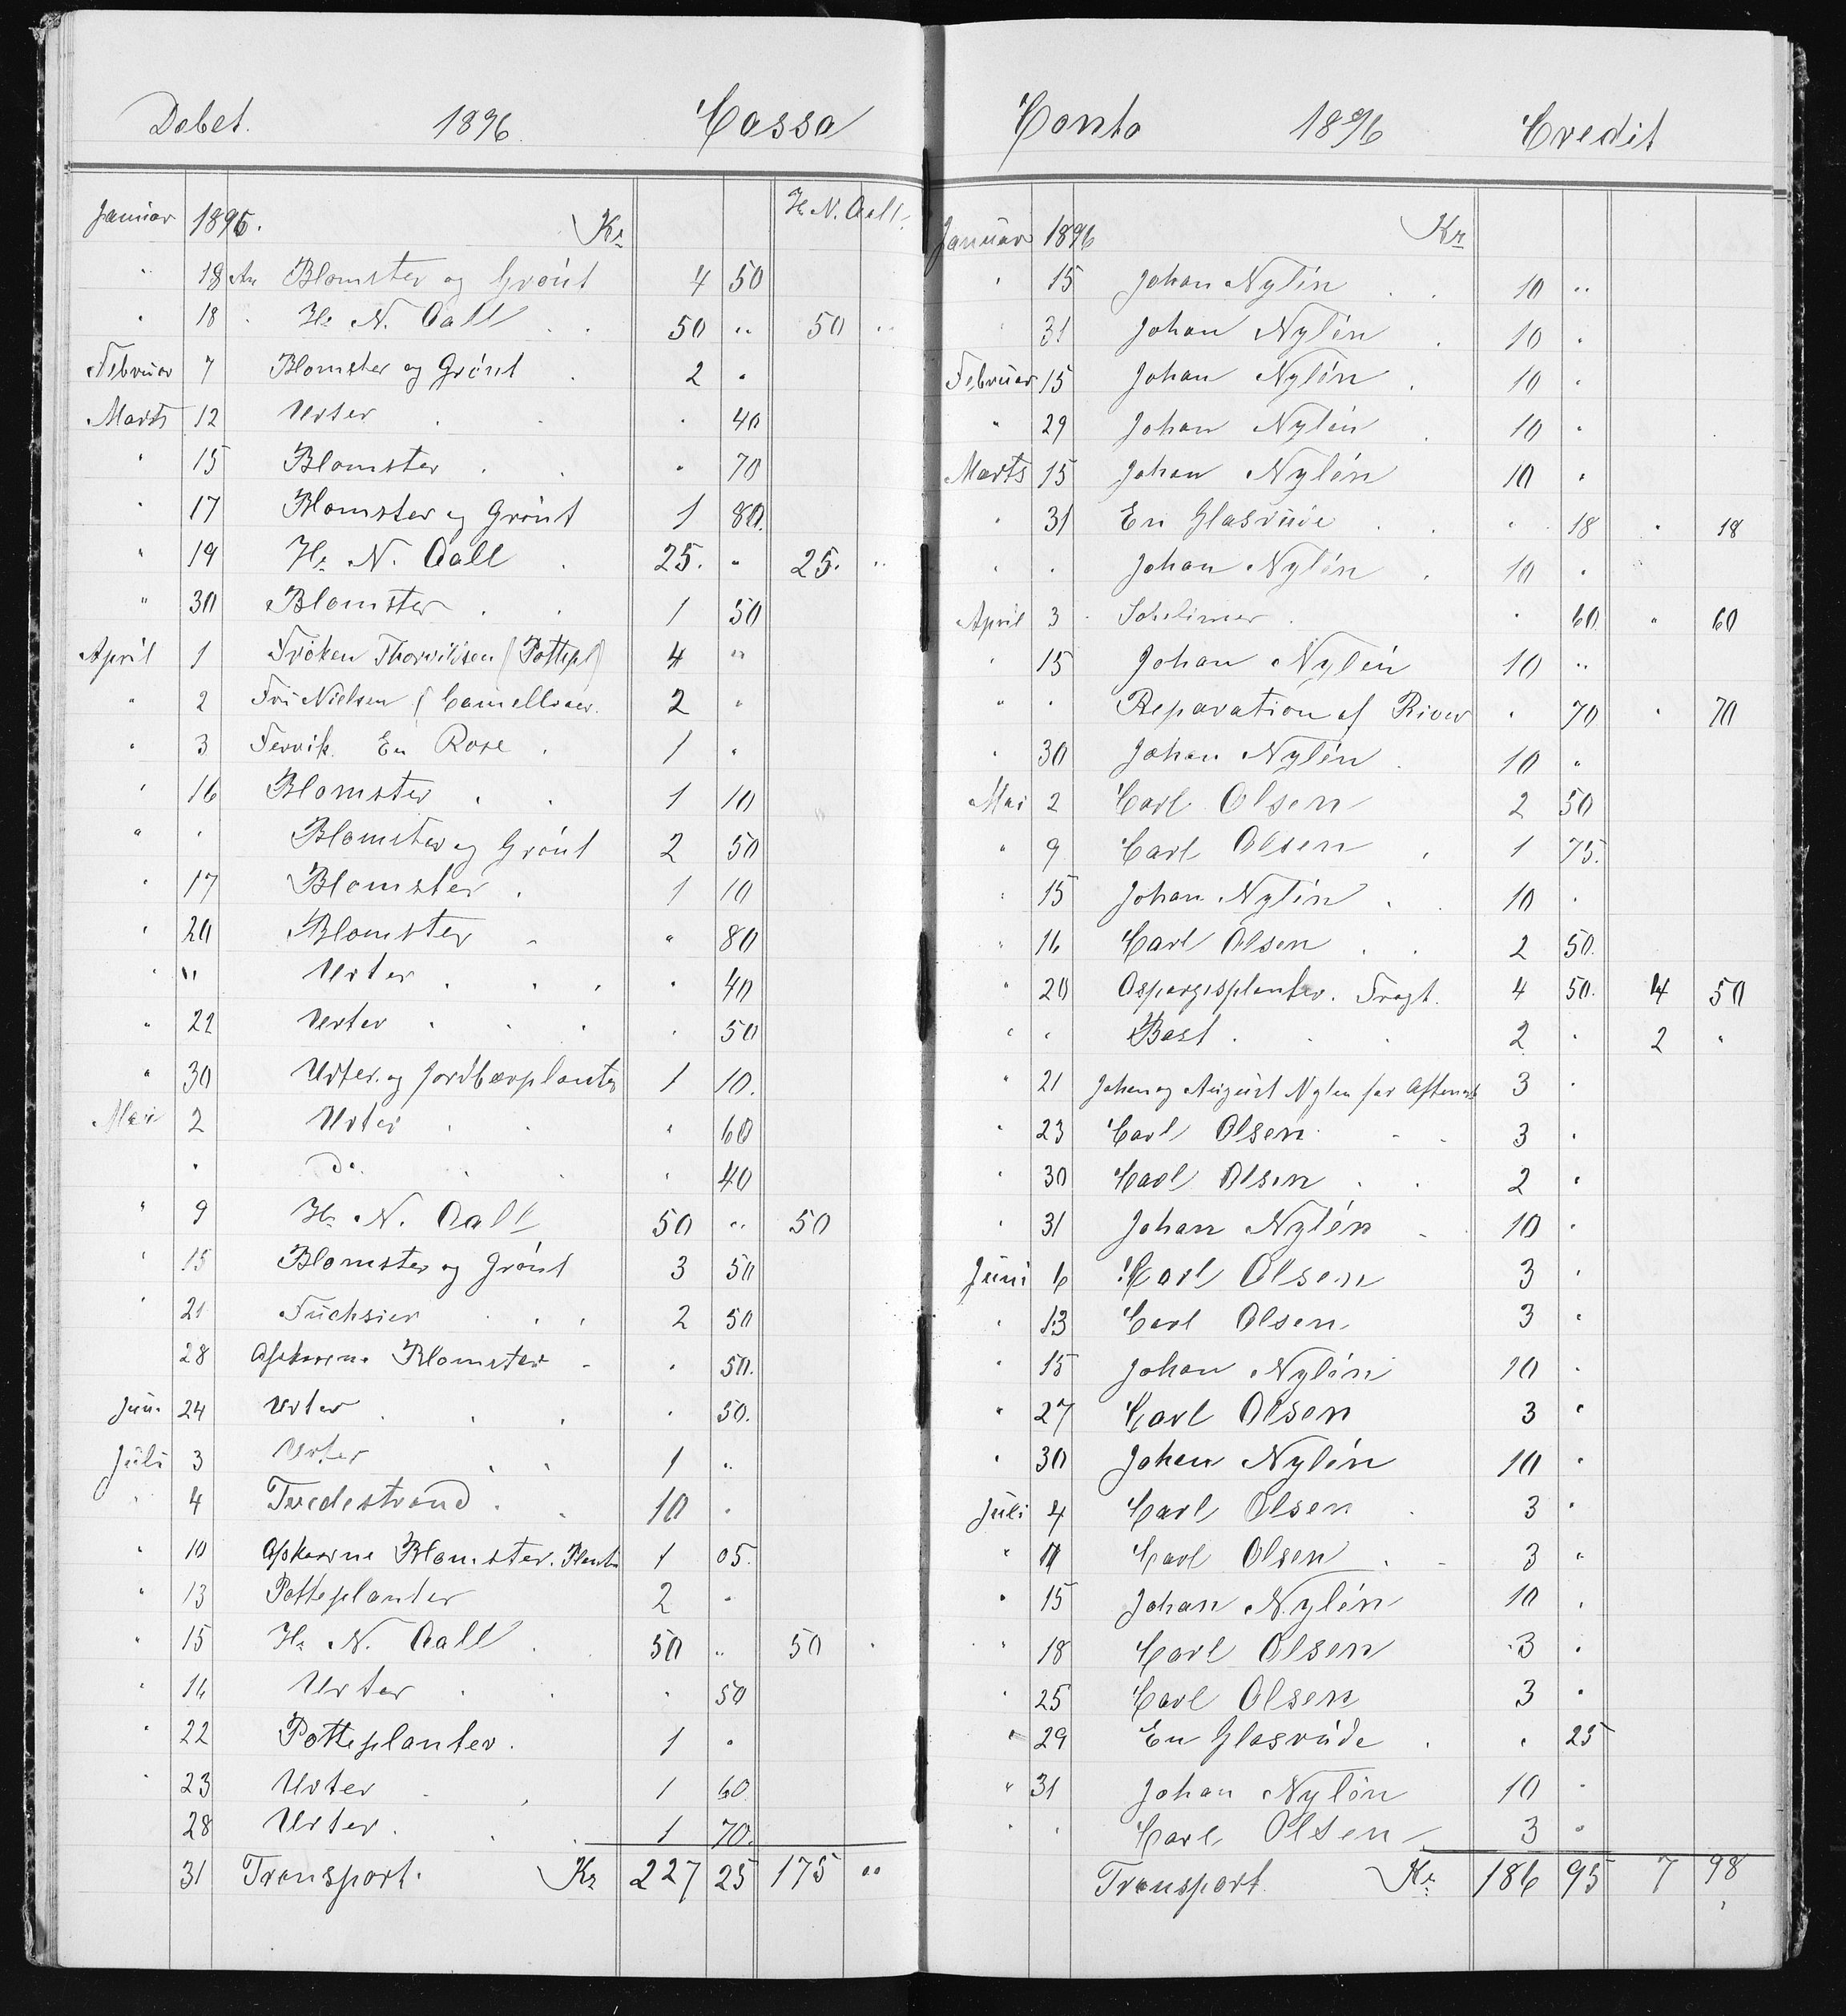 Debet. 1896. Cassa
Januar 1896. Kr H. N. Aall.
" 18 An Blomster og Grönt 4 50
" 18 " Hr N. Aall 50 " 50 "
Februar 7 Blomster og Grönt 2 "
Marts 12 Urter " 40
" 15 Blomster " 70
" 17 Blomster og Grönt 1 80.
" 19 Hr N. Aall 25. " 25. "
" 30 Blomster 1 50
April 1 Fröken (Pottepl) 4 "
" 2 Frü Nielsen ( Camelliaer. 2 "
" 3 Fervik. En Rose 1 "
" 16 Blomster 1 10
" " Blomster og Grönt 2 50
" 17 Blomster 1 10
" 20 Blomster " 80
" " Urter " 40
" 22 Urter " 50
" 30 Urter og Jordbærplanter 1 10.
Mai 2 Urter " 60
" do " 40
" 9 Hr N. Aall 50 " 50
" 15 Blomster og Grönt 3 50
" 21 Fuchsier 2 50
28 Afskaarne Blomster " 50.
Juni 24 Urter " 50.
Juli 3 Urter 1 "
" 4 Tvedestrand 10 "
" 10 Afskaarne Blomster. Plante 1 05.
" 13 Potteplanter 2 "
" 15 Hr N. Aall 50 " 50 "
" 16 Urter " 50
" 22 Potteplanter. 1 "
" 23 Urter 1 60
28 Urter. 1 70.
31 Transport. Kr 227 25 175 "
Conto 1896 Credit
Januar 1896 Kr
" 15 Johan Nylén 10 "
" 31 Johan Nylén 10 "
Februar 15 Johan Nylén 10 "
" 29 Johan Nylén 10 "
Marts 15 Johan Nylén 10 "
" 31 En Glasrude " 18 " 18
" " Johan Nylén 10 "
April 3 " 60 " 60
" 15 Johan Nylén 10 "
" " Reparation af River " 70 " 70
" 30 Johan Nylén 10 "
Mai 2 Carl Olsen 2 50
" 9 Carl Olsen 1 75.
" 15 Johan Nylén 10 "
" 16 Carl Olsen 2 50.
" 20 Aspargesplanter. Fragt. 4 50. 4 50
" " Bast 2 " 2 "
" 21 Johan og August Nylen for Aftenarb 3 "
" 23 Carl Olsen 3 "
" 30 Carl Olsen 2 "
" 31 Johan Nylén 10 "
Juni 6 Carl Olsen 3 "
" 13 Carl Olsen 3 "
" 15 Johan Nylén 10 "
" 27 Carl Olsen 3 "
" 30 Johan Nylén 10 "
Juli 4 Carl Olsen 3 "
" 11 Carl Olsen 3 "
" 15 Johan Nylén 10 "
" 18 Carl Olsen 3 "
" 25 Carl Olsen 3 "
" 29 En Glasrude " 25
" 31 Johan Nylén 10 "
" " Carl Olsen 3 "
Transport. Kr 186 95 7 98